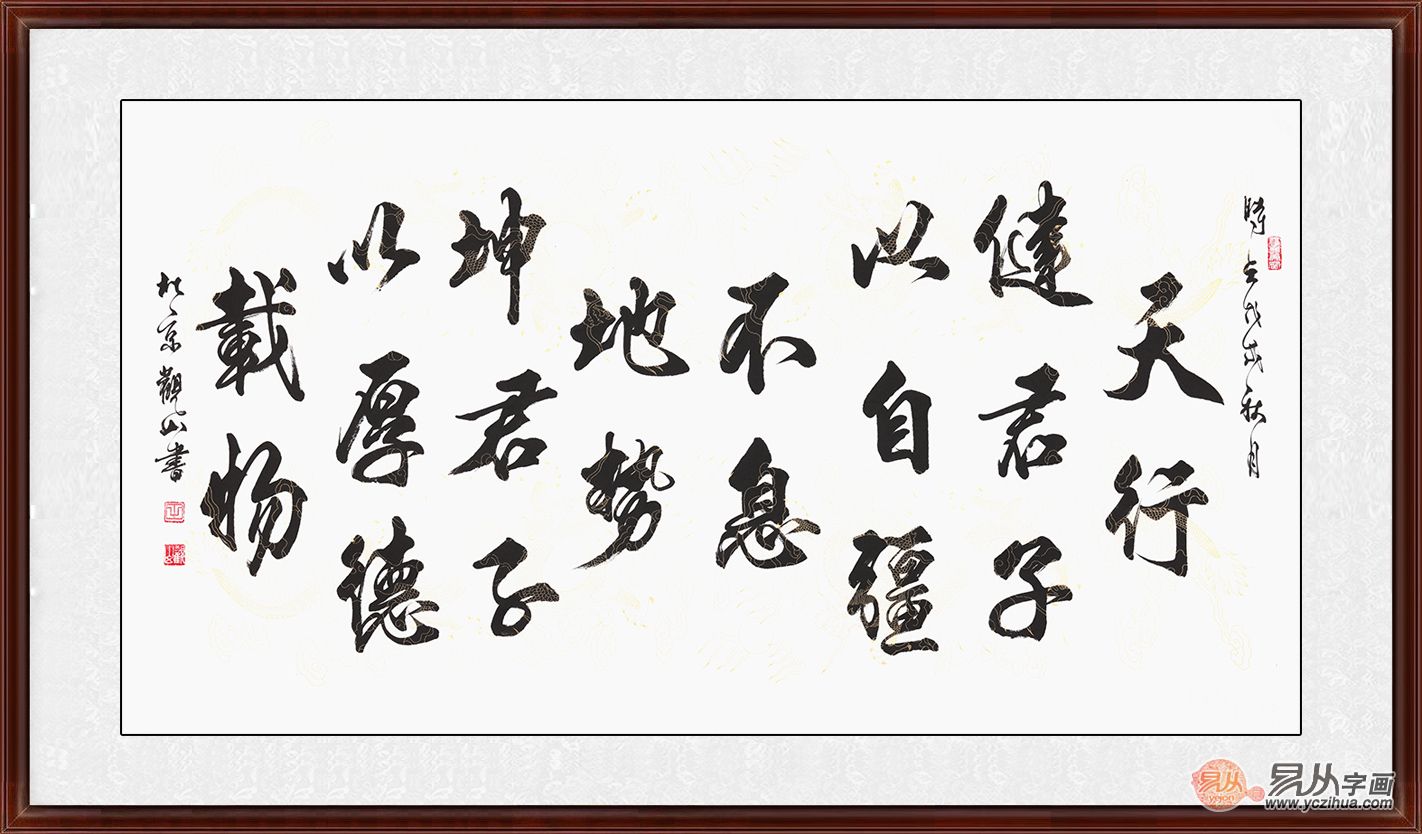 時在戊戌秋月
天行
健君子
以自彊
不息
地勢
坤君子
以厚德
載物
於京觀山書
易从
易从字画
www.yczihua.com